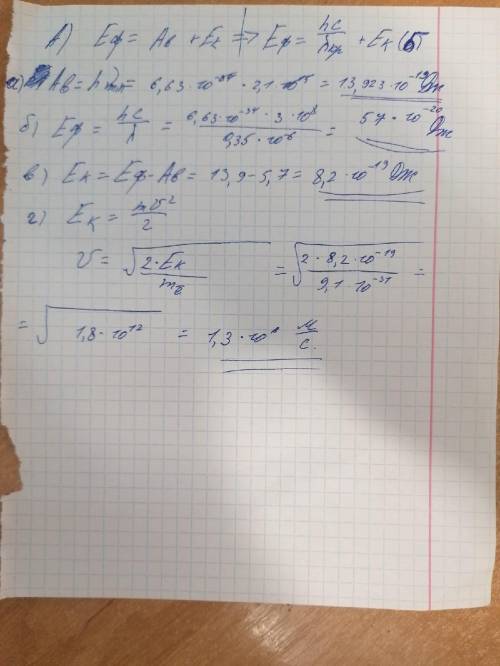 А) Eф = Aв + Eк => Eф = hc/λкр + Eк (б)
а) Aв = hνmin = 6,63·10⁻³⁴ · 2,1·10¹⁵ = 13,923·10⁻¹⁹ Дж
б) Eф = hc/λ = 6,63·10⁻³⁴ · 3·10⁸ / 0,35·10⁻⁶ = 57·10⁻²⁰ Дж
в) Eк = Eф - Aв = 13,9 - 5,7 = 8,2·10⁻¹⁹ Дж
г) Eк = mv²/2
v = √(2·Eк/mе) = √(2·8,2·10⁻¹⁹/9,1·10⁻³¹) =
= √1,8·10¹² = 1,3·10⁶ м/с.